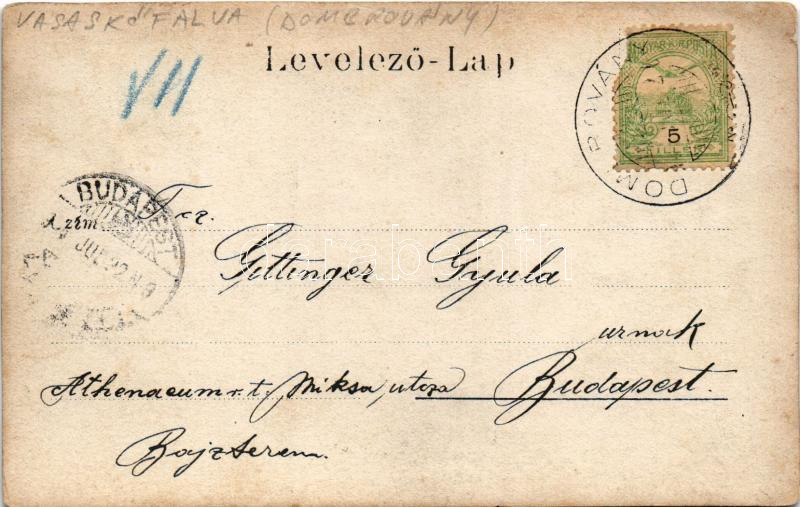 VASASKŐFALVA (DOMBROVÁNY)
Levelező-Lap
VII
MAGYAR KIR. POSTA
5
FILLÉR
DOMBROVÁNY
BUDAPEST
JUL 22
A zím
Tcz.
Gittinger Gyula
urnak
Athenaeum r. t. Miksa utcza Budapest.
Rajzterem.